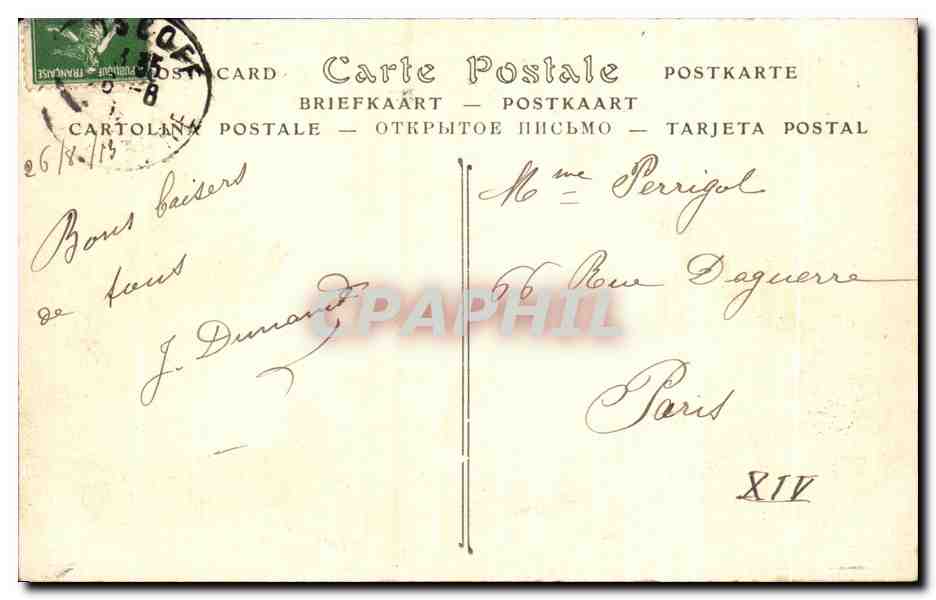 RÉPUBLIQUE FRANÇAISE
ROSCOFF
POST CARD Carte Postale POSTKARTE
BRIEFKAART — POSTKAART
CARTOLINA POSTALE — ОТКРЫТОЕ ПИСЬМО — TARJETA POSTAL
26/8/13
Bons baisers
de tous
J. Dunand
Mme Perrigol
66 Rue Daguerre
Paris
XIV
CPAPHIL